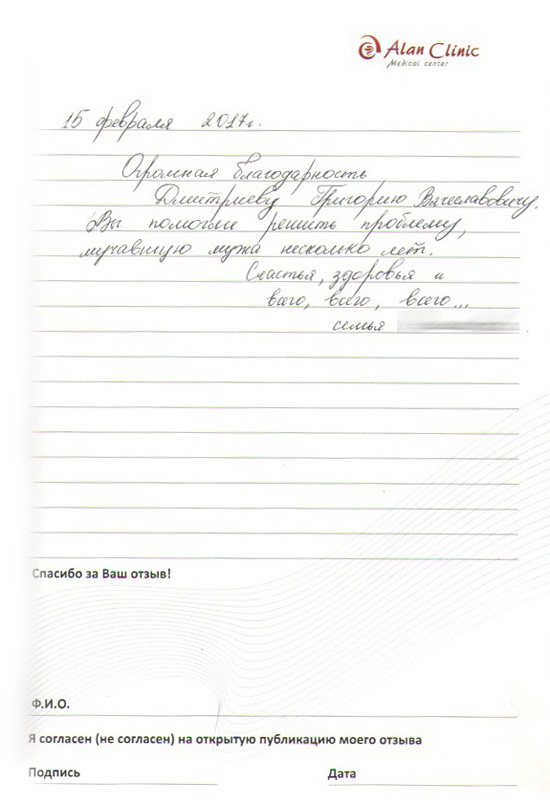 Alan Clinic
Medical center
15 февраля 2017г.
Огромная благодарность
Дмитриеву Григорию Вячеславовичу.
Вы помогли решить проблему,
мучавшую мужа несколько лет.
Счастья, здоровья и
всего, всего, всего...
семья
Спасибо за Ваш отзыв!
Ф.И.О.
Я согласен (не согласен) на открытую публикацию моего отзыва
Подпись Дата